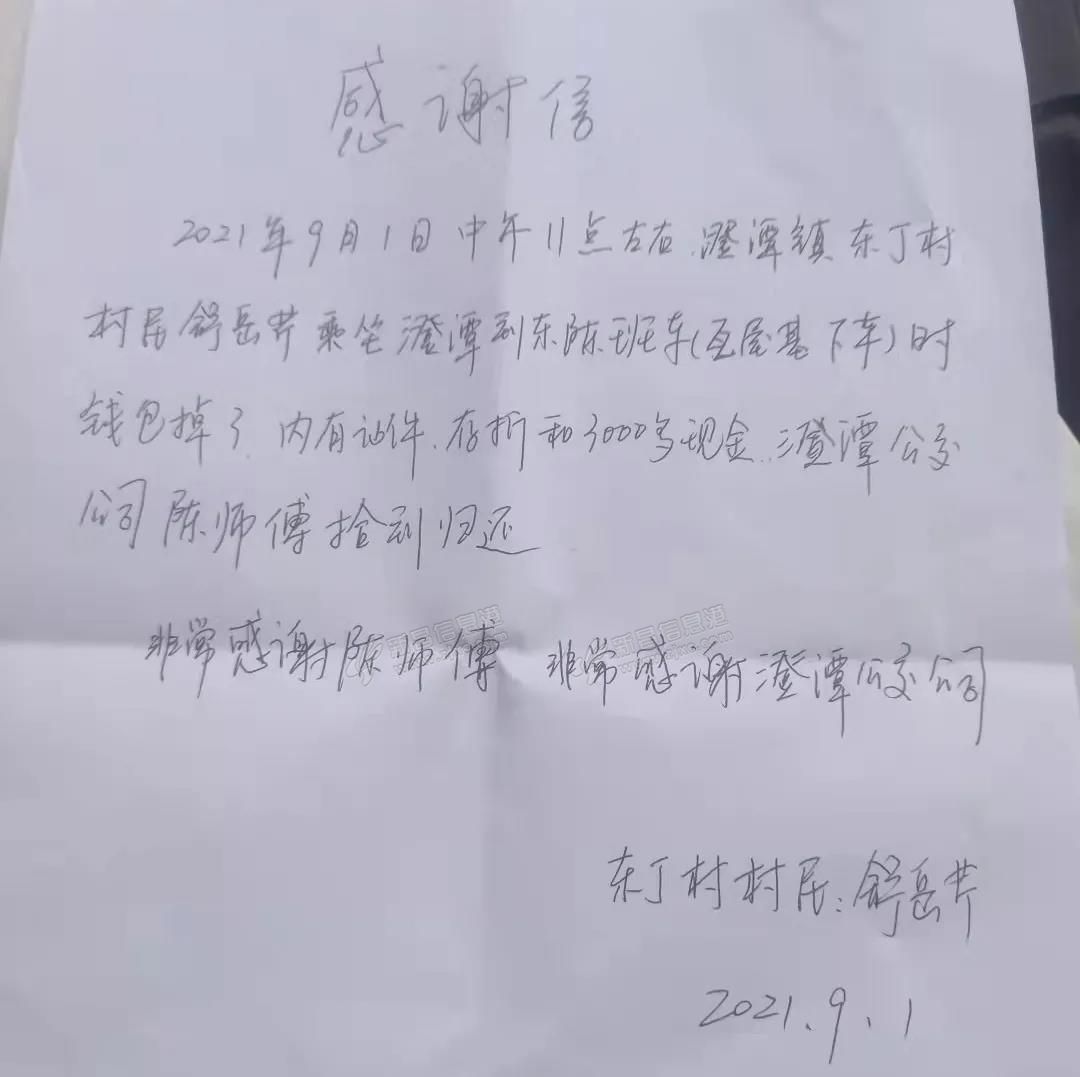 感谢信
2021年9月1日中午11点左右.澄潭镇东丁村
村民舒岳芹乘坐澄潭到东陈班车(瓦屋基下车)时
钱包掉了.内有证件.存折和3000多现金.澄潭公交
公司陈师傅拾到归还
非常感谢陈师傅 非常感谢澄潭公交公司
东丁村村民:舒岳芹
2021.9.1
新昌信息港 新昌信息港